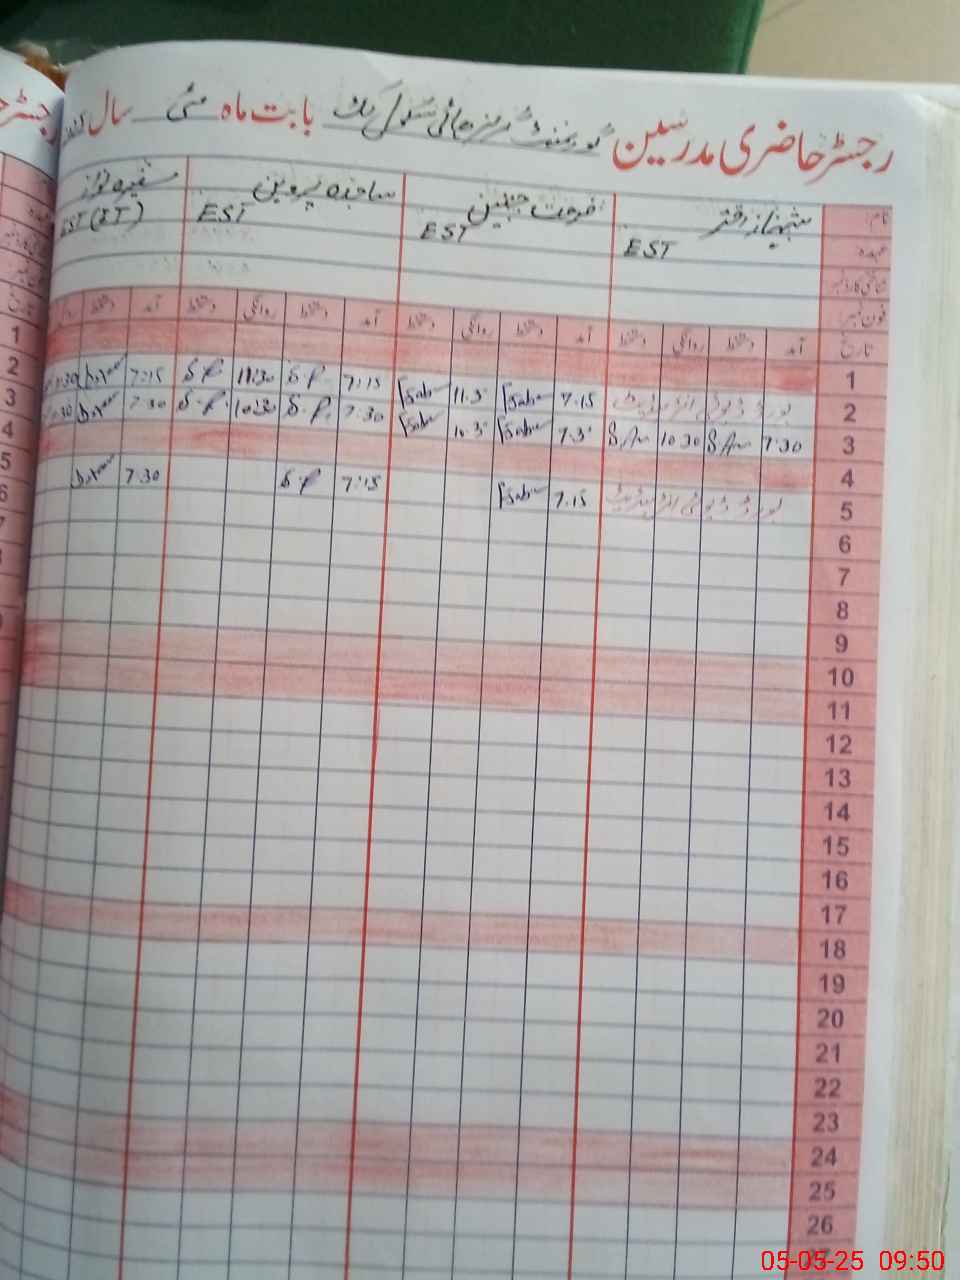 رجسٹر حاضری مدرسین گورنمنٹ گرلز ہائی سکول بابت ماہ مئی سال
نام شہناز اختر فرحت جبین ساجدہ پروین سفیرہ نواز
عہدہ EST EST EST EST (IT)
شناختی کارڈ نمبر
فون نمبر
تاریخ آمد دستخط روانگی دستخط آمد دستخط روانگی دستخط آمد دستخط روانگی دستخط آمد دستخط
1
2 بورڈ ڈیوٹی انٹرمیڈیٹ 7.15 Fjabe 11.3 Fjabe 7:15 S.P. 11:30 S.P. 7:15
3 7:30 S.A 10.30 S.A 7.3 Fjabe 10.3 Fjabe 7.30 S.P. 10:30 S.P. 7.30
4
5 بورڈ ڈیوٹی انٹرمیڈیٹ 7.15 Fjabe 7:15 S.P 7.30
6
7
8
9
10
11
12
13
14
15
16
17
18
19
20
21
22
23
24
25
26
05-05-25 09:50